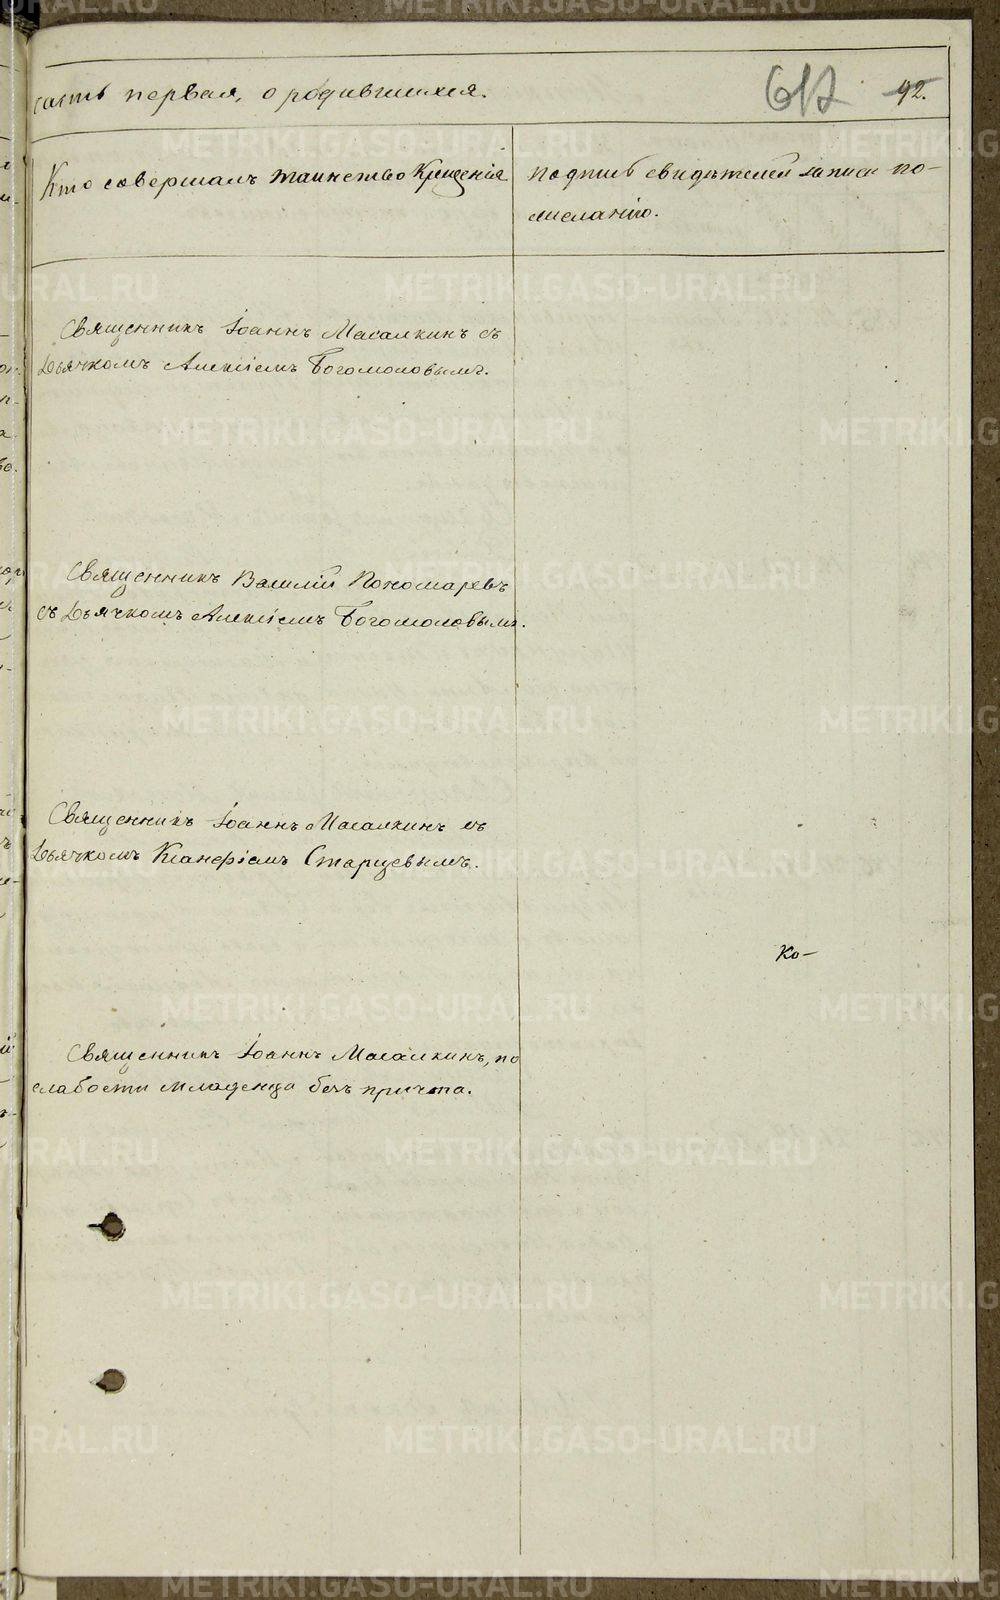 часть первая, о родившихся.
617 92.
Кто совершалъ таинство Крещенія
Подпись свидѣтелей записи по
желанію.
Священникъ Іоаннъ Масалкинъ съ
Дьячкомъ Алексіемъ Богомоловымъ.
Священникъ Василій Пономаревъ
съ Дьячкомъ Алексіемъ Богомоловымъ.
Священникъ Іоаннъ Масалкинъ съ
Дьячкомъ Ксанфіемъ Старцевымъ.
Ко-
Священникъ Іоаннъ Масалкинъ, по
слабости младенца безъ причта.
METRIKI.GASO-URAL.RU